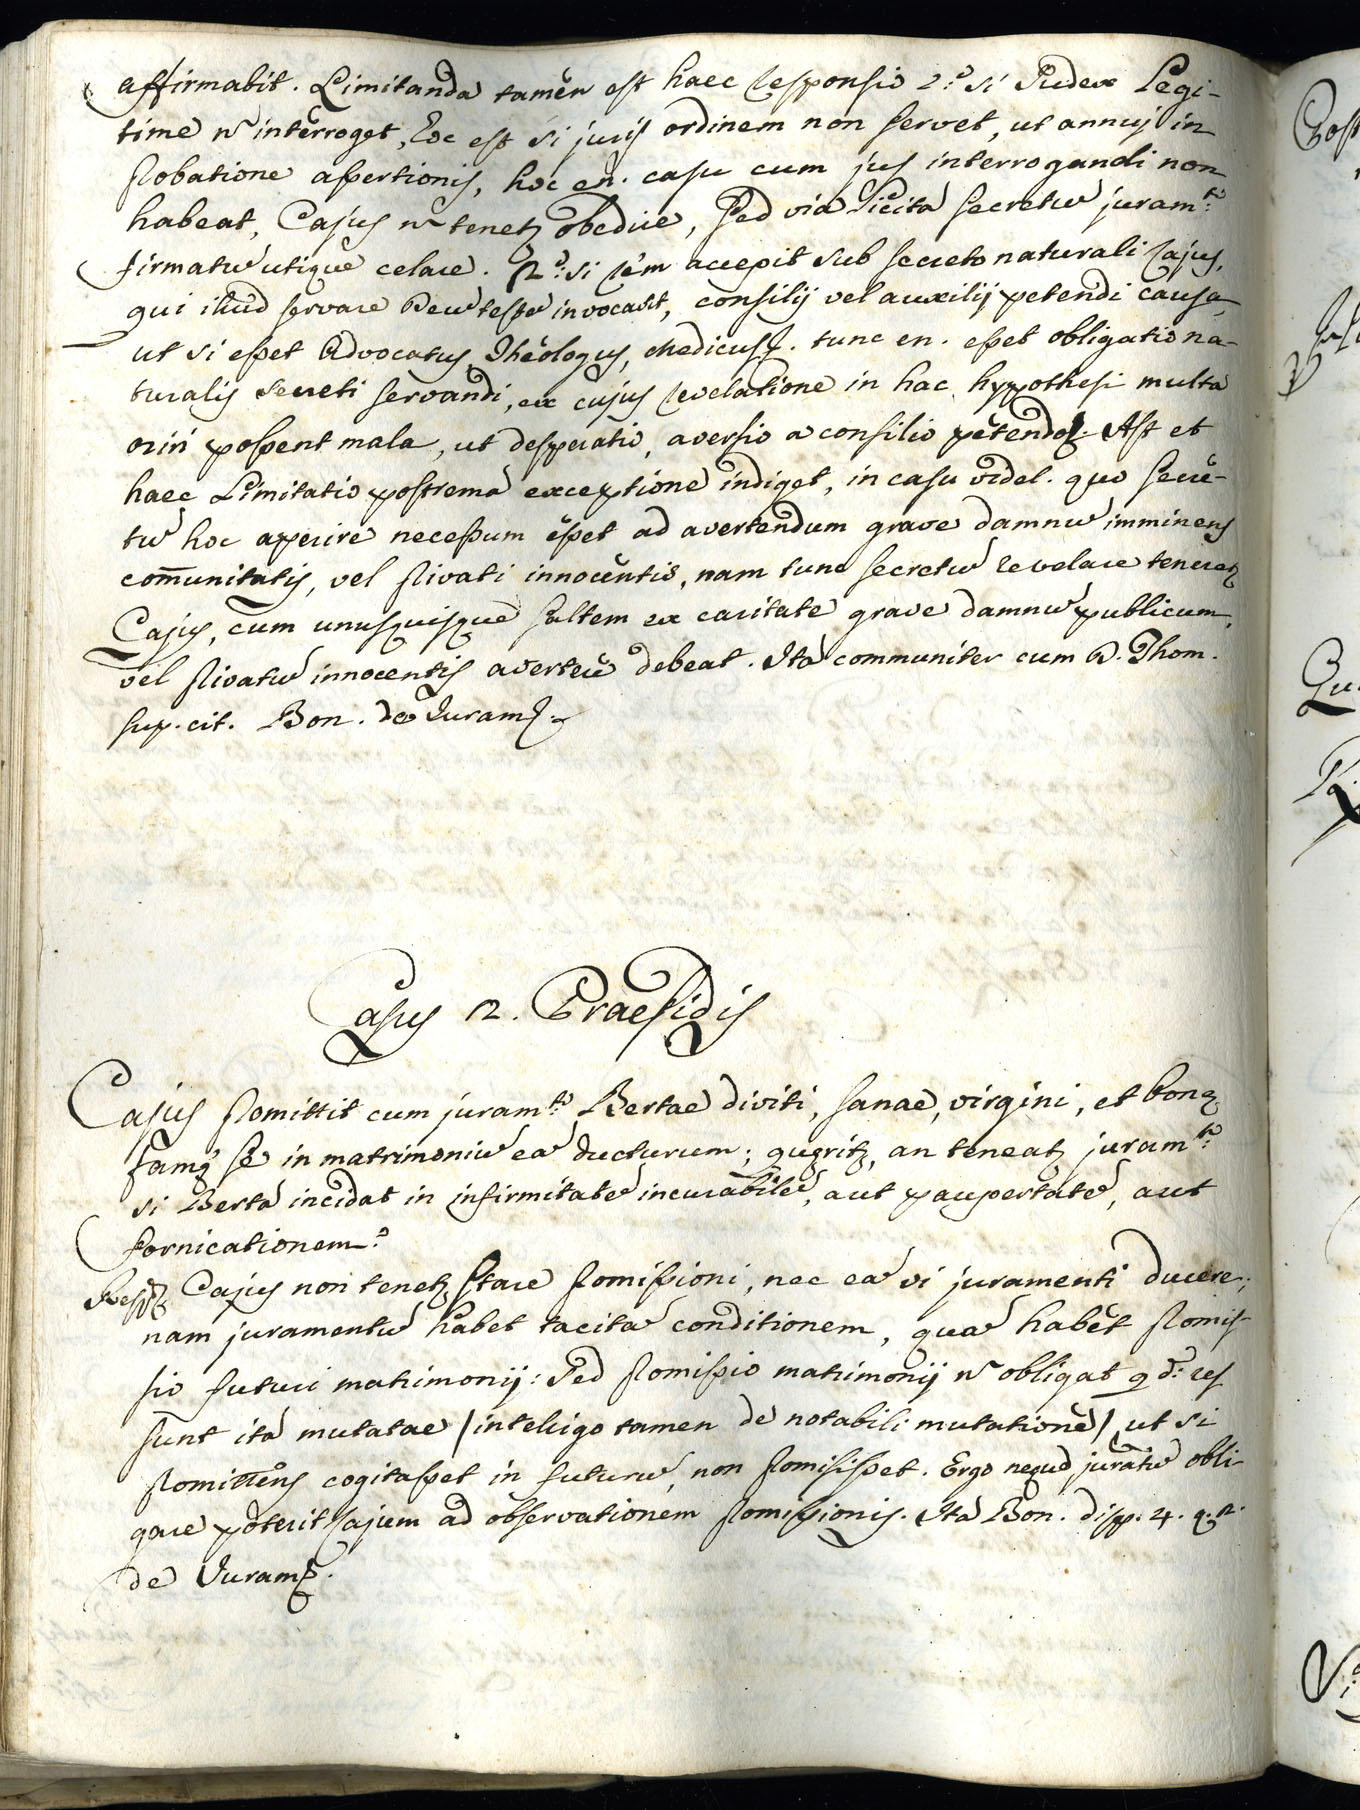 affirmabit. Limitanda tamen est haec responsio 1.º si Judex Legi-
time ñ interroget, hoc est si juris ordinem non servet, ut annuis in
probatione assertionis, hoc en. casu cum jus interrogandi non
habeat, Cajus ñ tenetꝫ obedire, sed via licita secretũ juram.to
firmatũ utique celare. 2.º si rem accepit sub secreto naturali Cajus,
qui illud servare Deũ testẽ invocavit, consilij vel auxilij petendi causa,
ut si esset Advocatus, Theologus, Medicus &. tunc en. esset obligatio na-
turalis secreti servandi, ex cujus revelatione in hac hypothesi multa
oriri possent mala, ut desperatio, aversio a consilio petendo &. Ast et
haec Limitatio postrema exceptione indiget, in casu videl. quo secre-
tũ hoc aperire necessum esset ad avertendum grave damnũ imminens
com̄unitatis, vel privati innocentis, nam tunc secretũ revelare teneretꝫ
Cajus, cum unusquisque saltem ex caritate grave damnũ publicum,
vel privatũ innocentis avertere debeat. Ita communiter cum D. Thom.
sup. cit. Bon. de Juramꝫ.
Casus 2. Praesidis
Cajus promittit cum juram.to Bertae diviti, sanae, virgini, et bonę
famę se in matrimoniũ eã ducturum; quęritꝫ, an teneatꝫ juram.to
si Berta incidat in infirmitatẽ incurabilẽ, aut paupertatẽ, aut
fornicationem?
Respꝫ Cajus non tenetꝫ stare promissioni, nec eã vi juramenti ducere;
nam juramentũ habet tacitã conditionem, quã habet promis-
sio futuri matrimonij: sed promissio matrimonij ñ obligat qd̃: res
sunt ita mutatae /intelligo tamen de notabili mutatione/ ut si
promittens cogitasset in futurũ, non promisisset. Ergo nequid juratũ obli-
gare poterit Cajum ad observationem promissionis. Ita Bon. disp. 4. q.
de Juramꝫ.